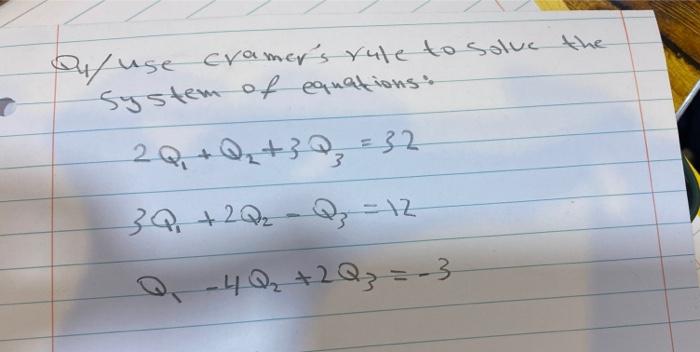 Q4/ use cramer's rule to solve the
system of equations:
2Q₁ + Q₂ + 3Q₃ = 32
3Q₁ + 2Q₂ - Q₃ = 12
Q₁ - 4Q₂ + 2Q₃ = -3